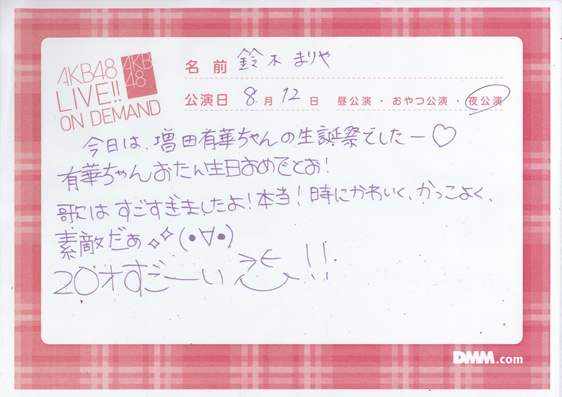 AKB48
LIVE!!
ON DEMAND
AKB
48
名前 鈴木まりや
公演日 8月12日 昼公演・おやつ公演・夜公演
今日は、増田有華ちゃんの生誕祭でしたー♡
有華ちゃんおたん生日おめでとお!
歌はすごすぎましたよ!本当!時にかわいく、かっこよく、
素敵だぁ(•∀•)
20才すごーい!!
DMM.com